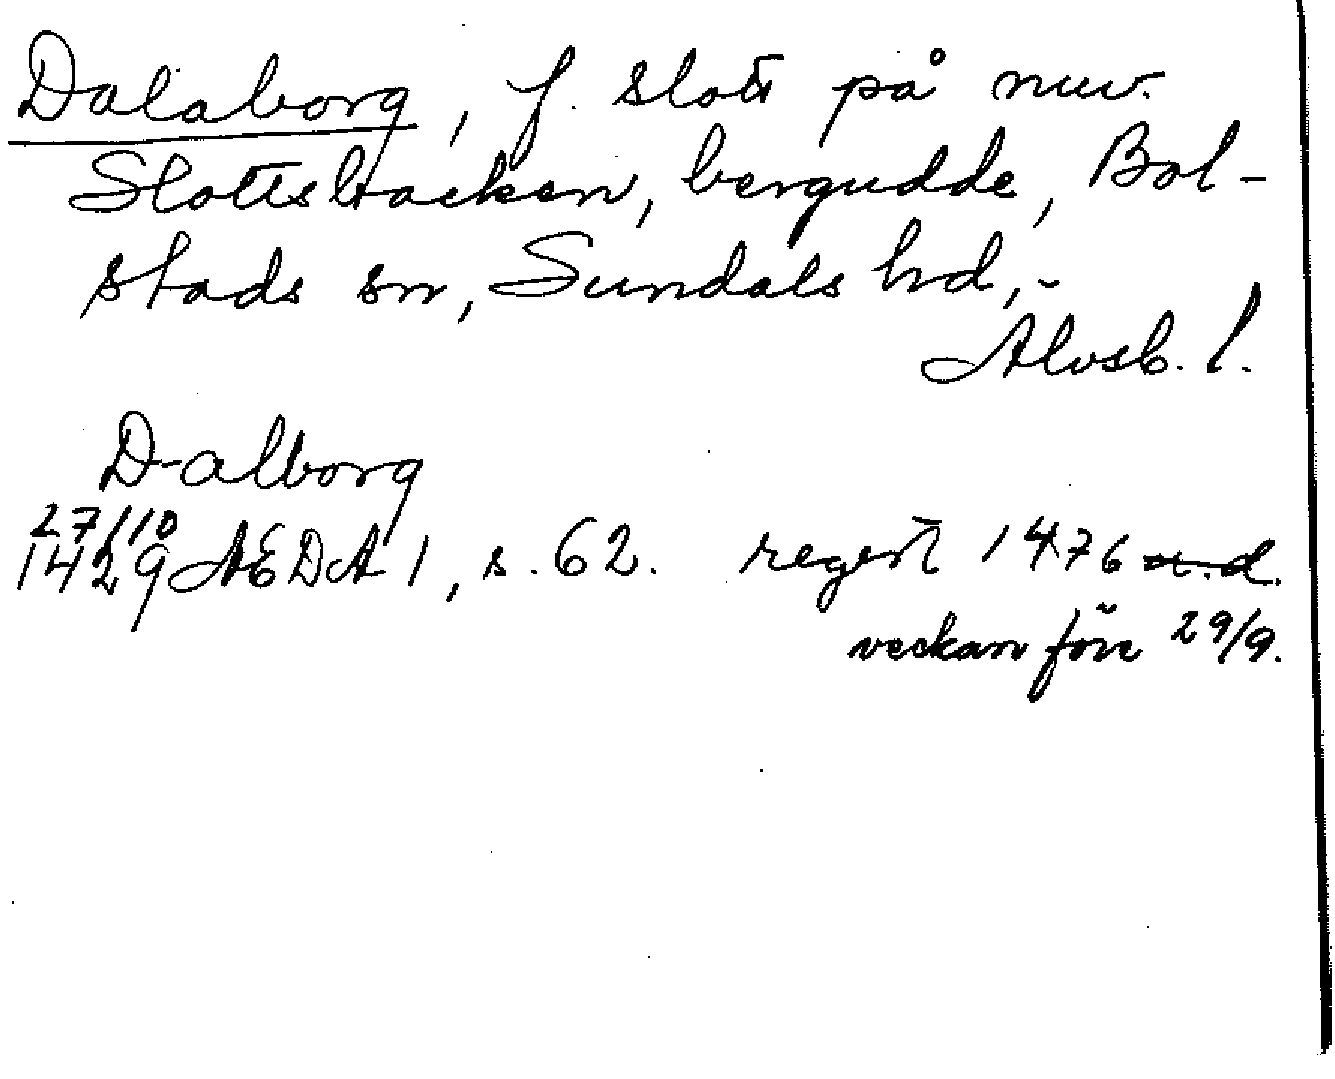 Dalaborg, f. slott på nuv.
Slottsbacken, bergudde, Bol-
stads sn, Sundals hd,-
Älvsb. l.
Dalborg
27/10
1429 ÆDA 1, s. 62. regest 1476 u.d.
veckan före 29/9.